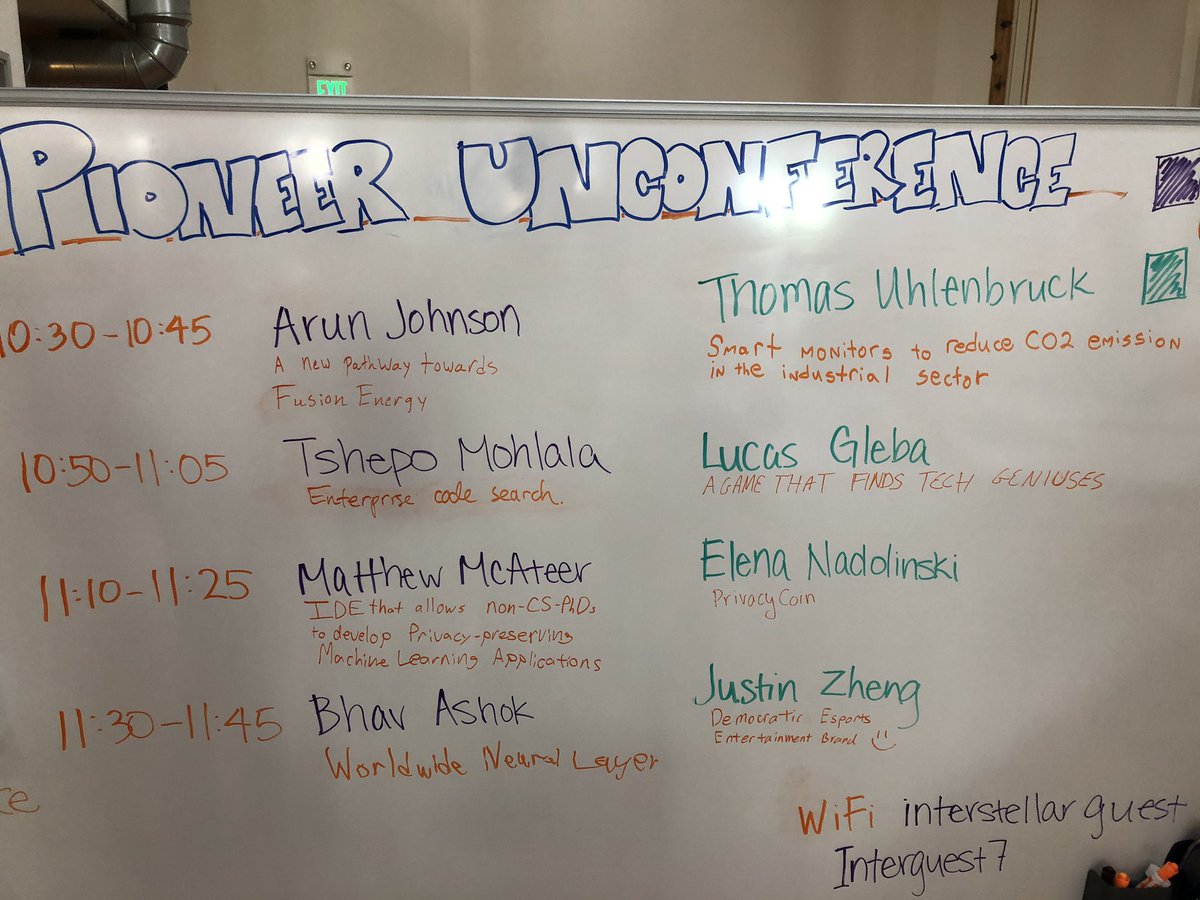 EXIT
PIONEER UNCONFERENCE
10:30-10:45
Arun Johnson
A new pathway towards
Fusion Energy
Thomas Uhlenbruck
Smart monitors to reduce CO2 emission
in the industrial sector
10:50-11:05
Tshepo Mohlala
Enterprise code search.
Lucas Gleba
A GAME THAT FINDS TECH GENIUSES
11:10-11:25
Matthew McAteer
IDE that allows non-CS-PhDs
to develop Privacy-preserving
Machine Learning Applications
Elena Nadolinski
Privacy Coin
11:30-11:45
Bhav Ashok
Worldwide Neural Layer
Justin Zheng
Democratic Esports
Entertainment Brand
WiFi interstellar guest
Interguest7